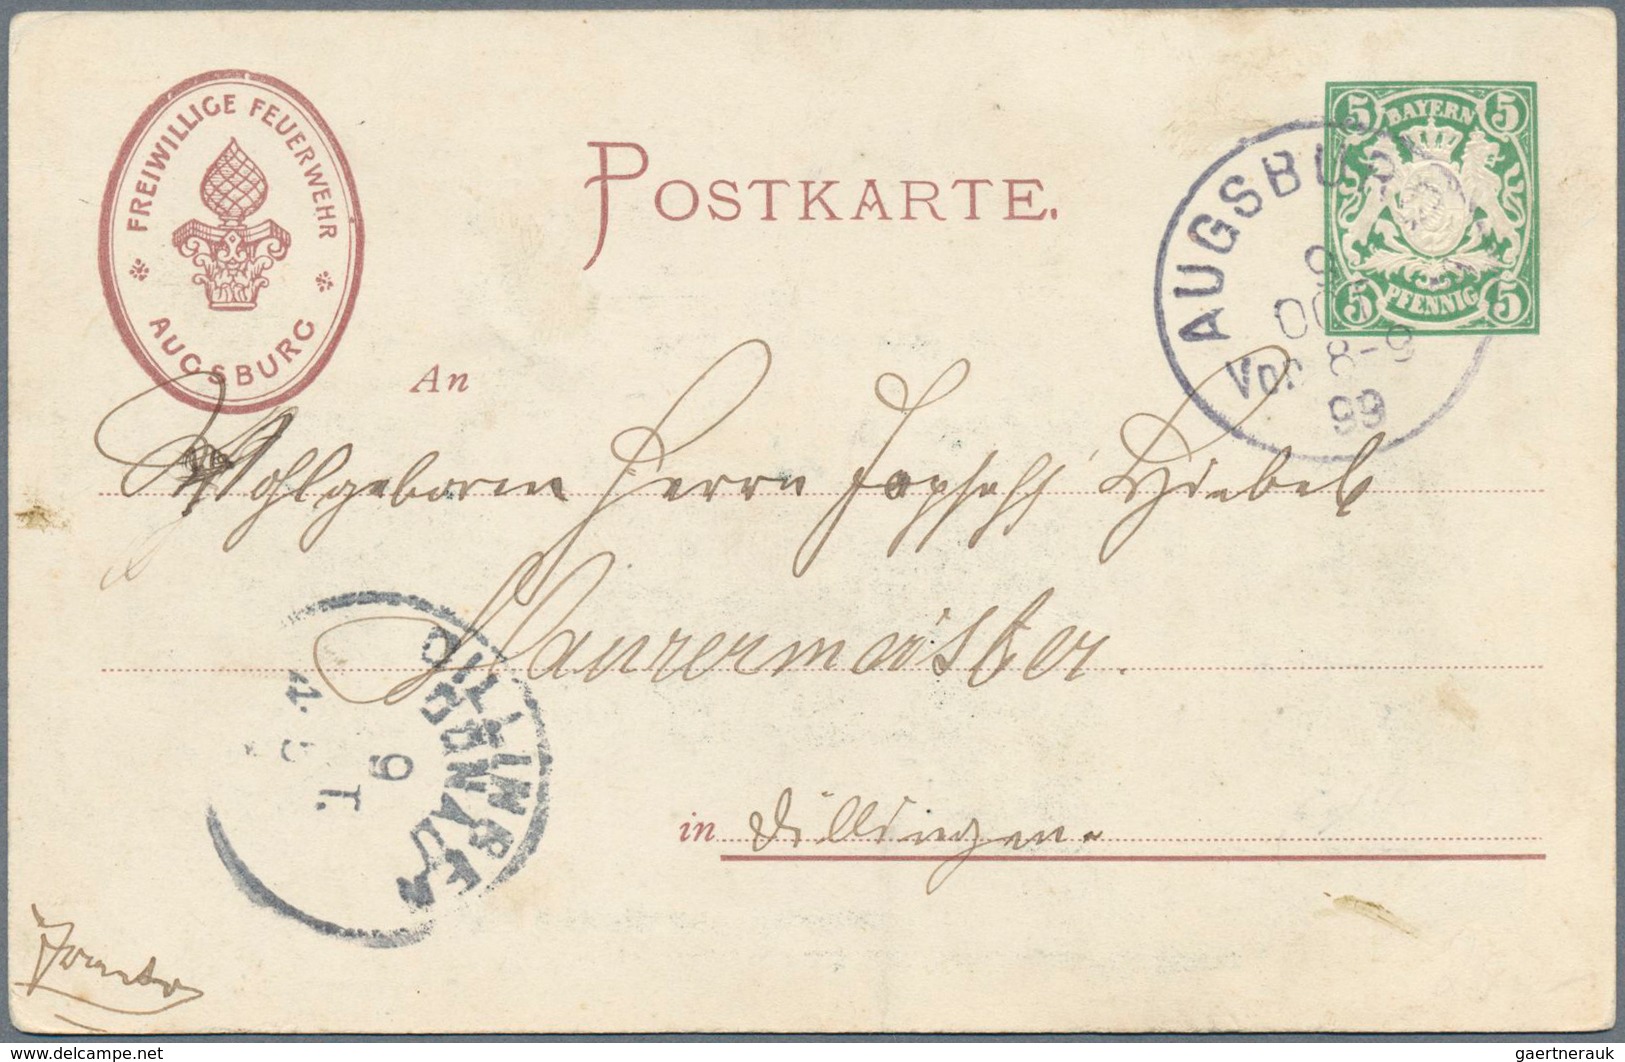 FREIWILLIGE FEUERWEHR
AUGSBURG
POSTKARTE.
5 BAYERN 5
5 PFENNIG 5
AUGSBURG
9
OCT
Vor 8-9
99
An
Wohlgeboren Herrn Hiebel
Maurermeister.
DILLINGEN
A/DONAU
9
in Dillingen.
Franko
www.delcampe.net
gaertnerauk